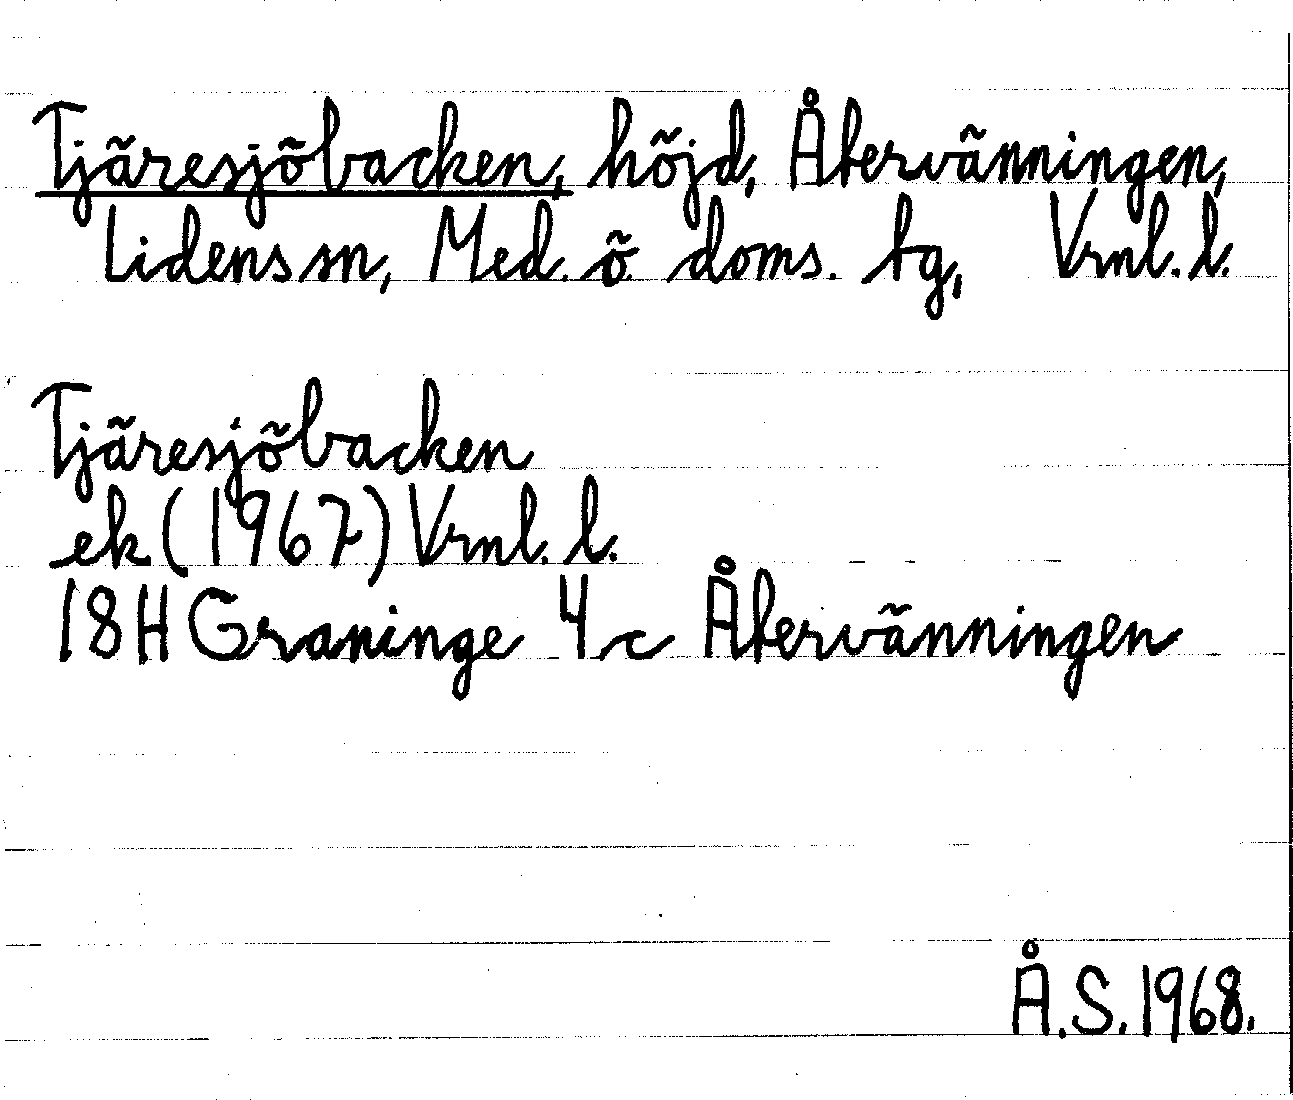 Tjäresjöbacken, höjd, Återvänningen,
Lidens sn, Med. ö doms. tg, Vrnl. l.
Tjäresjöbacken
ek (1967) Vrnl. l.
18H Graninge 4 c Återvänningen
Å.S. 1968.